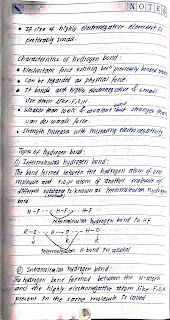 NOTES
• If size of highly electronegative element is
preferably small.
Characteristics of hydrogen bond:
• Electrostatic force existing b/w previously bonded atoms
• Can be regarded as physical force
• It bonds with highly electronegative & small
size atom like F,O,N.
• Weaker than ionic & covalent bond stronger than
van der waals force.
• Strength increases with increasing electronegativity.
Types of Hydrogen bond:
① Intermolecular hydrogen bond:
The bond formed between the hydrogen atom of one
molecule and F,O,N atom of another molecule of
different substance is known as intermolecular hydrogen
bond
H-F --- H-F --- H-F
Intermolecular hydrogen bond in HF.
R-O --- H-O --- H-O
Intermolecular H-bond in alcohol
② Intramolecular hydrogen bond:
The hydrogen bond formed between the H-atom
and the highly electronegative atom like F,O,N
present in the same molecule is called